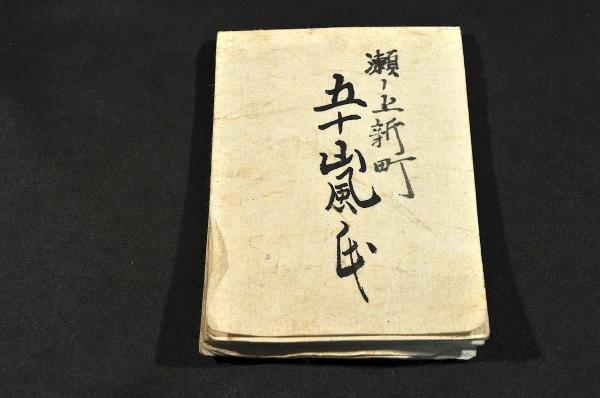 瀬ノ上新町
五十嵐氏